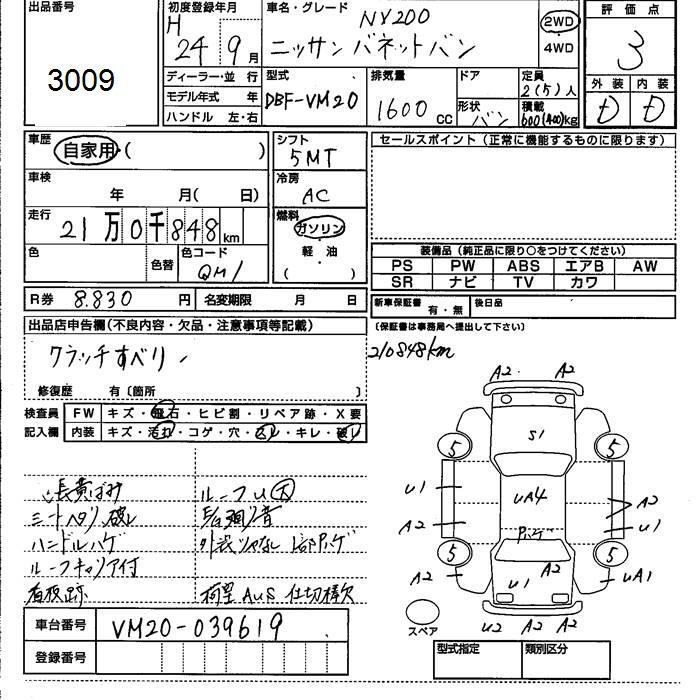 出品番号
3009
初度登録年月
H 24 9 月
車名・グレード
NV200
ニッサン バネットバン
2WD
4WD
評価点
3
外装 内装
D D
ディーラー・並 行
モデル年式 年
ハンドル 左・右
型式
DBF-VM20
排気量
1600 CC
ドア
形状
バン
定員
2(5)人
積載
600(400)kg
車歴
自家用・( )
シフト
5MT
車検
年 月( 日)
冷房
AC
走行
21万0千848km
燃料
ガソリン
軽・油
( )
色
色替
色コード
QM1
R券 8.830 円
名変期限 月 日
セールスポイント(正常に機能するものに限ります)
装備品(純正品に限り○をつけてください)
PS PW ABS エアB AW
SR ナビ TV カワ
新車保証書 有・無
後日品
(保証書は事務局へ提出して下さい)
210848km
出品店申告欄(不良内容・欠品・注意事項等記載)
クラッチすべり
修復歴 有〔箇所 〕
検査員
記入欄
FW キズ・飛石・ヒビ割・リペア跡・X要
内装 キズ・汚れ・コゲ・穴・スレ・キレ・破レ
シートヘタリ 破レ
ハンドルハゲ
ルーフキャリア付
看板跡
ルーフU 大
仕切棒欠
車台番号 VM20-039619
登録番号
A2 A2
S1
5 5
U1
UA4
A2
A2
U1
5 5
A2
A2
U1
UA1
U2 A2 A2
スペア
型式指定 類別区分